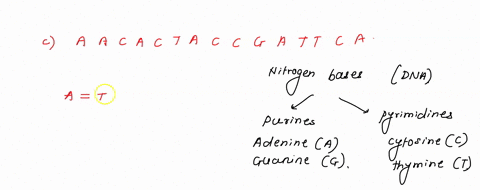 c) A A C A C T A C C G A T T C A.
Nitrogen bases (DNA)
A = T
purines
Adenine (A)
Guanine (G).
pyrimidines
cytosine (C)
thymine (T)